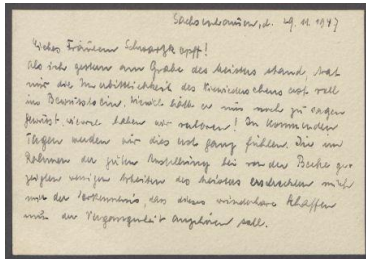 Sachsenhausen, d. 29.11.1947
Liebes Fräulein Schwartzkopff!
Als ich gestern am Grabe des Meisters stand, trat
mir die Unerbittlichkeit des Lebens erst voll
ins Bewusstsein. Wieviel hätte er uns noch zu sagen
gewusst, wieviel haben wir verloren! In kommenden
Tagen werden wir dies erst ganz fühlen. Die im
Rahmen der Ausstellung bei von der Becke ge-
zeigten wenigen Arbeiten des Meisters erschrecken mich
mit der Erkenntnis, dass dieses wunderbare Schaffen
nun der Vergangenheit angehören soll.